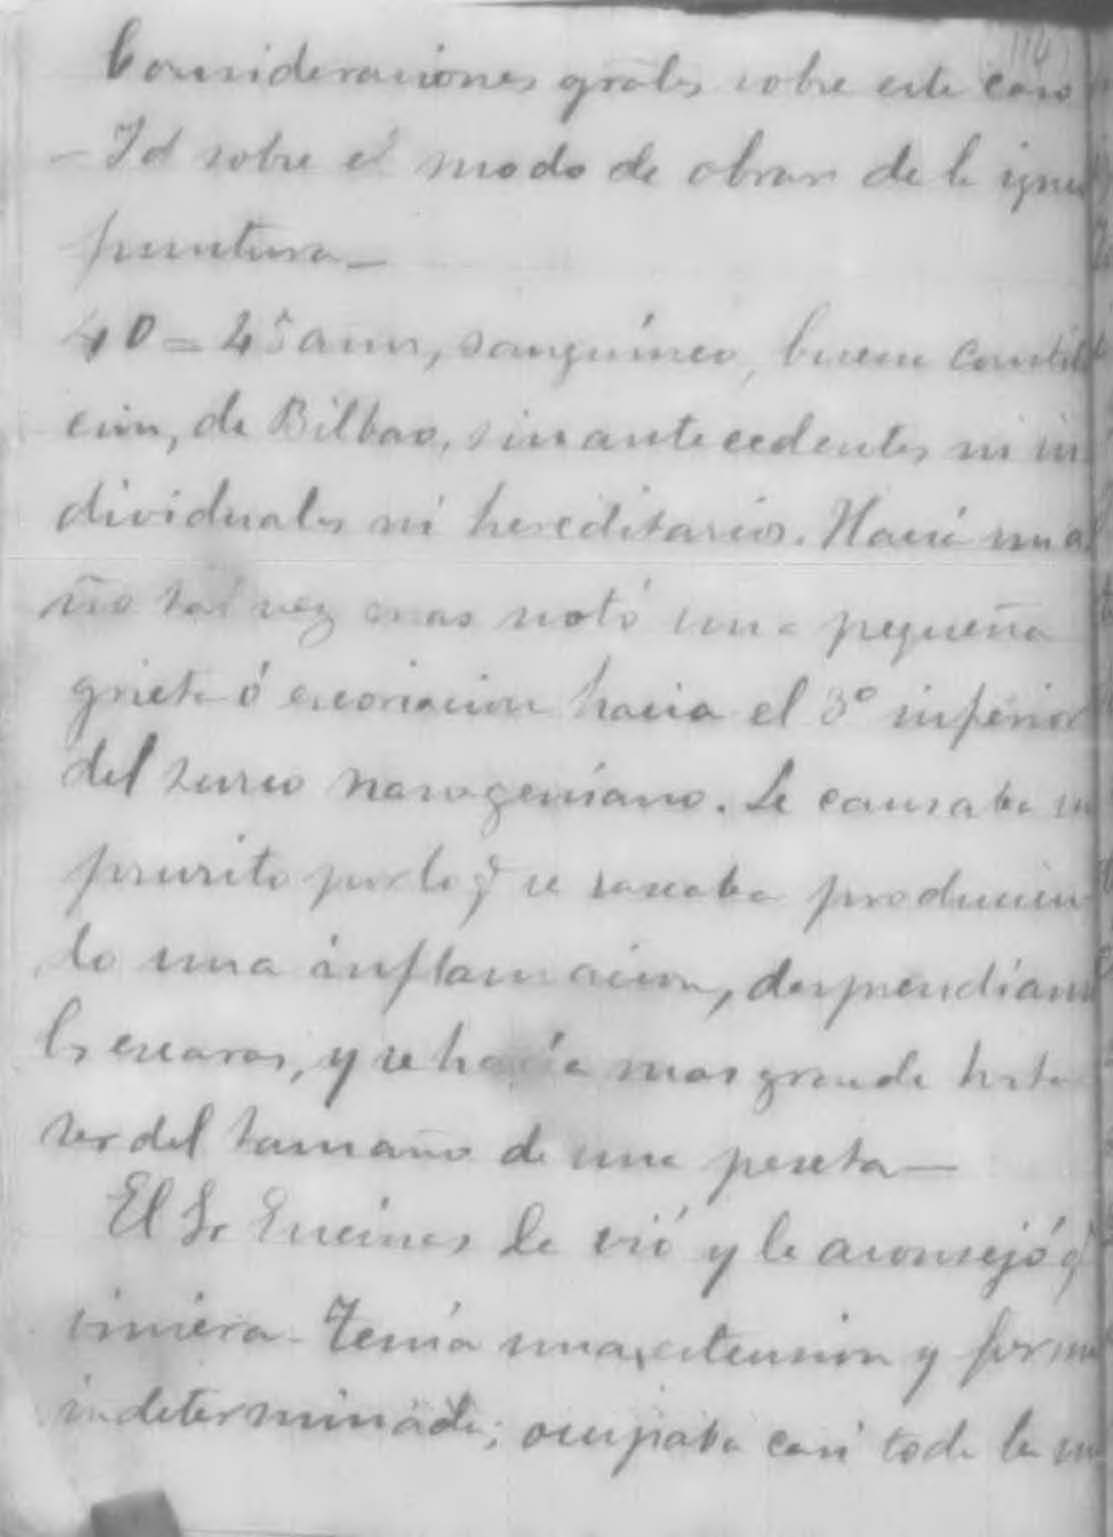 Consideraciones grales sobre este caso
- Id sobre el modo de obrar de la igni
puntura -
4º = 45 años, sanguíneo, buena constitu
cion, de Bilbao, sin antecedentes ni in
dividuales ni hereditarios. Hacia un a
ño tal vez mas notó una pequeña
grieta ó escoriacion hacia el 3º inferior
del surco nasogeniano. Le causaba
prurito por lo q se rascaba producien
do una inflamacion, desprendianse
las escaras, y se hacía mas grande hasta
ser del tamaño de una peseta —
El Sr Encinas le vió y le aconsejó q
viniera - Tenía una extension y forma
indeterminada; ocupaba casi toda la